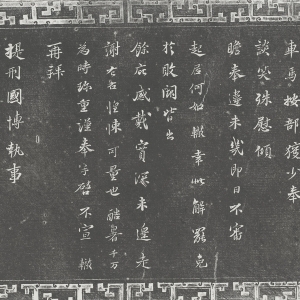 車馬按部獲少奉
談笑殊慰傾
瞻奉違未幾即日不審
起居何如轍幸此解罷免
於敗闕皆出
餘庇感戴實深未遑走
謝左右惶悚可量也酷暑千万
為時珍重謹奉手啓不宣 轍
再拜
提刑國博執事